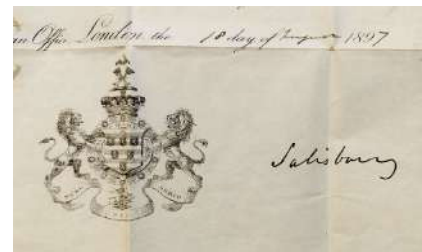 Office, London, the 18 day of August 1897
Salisbury